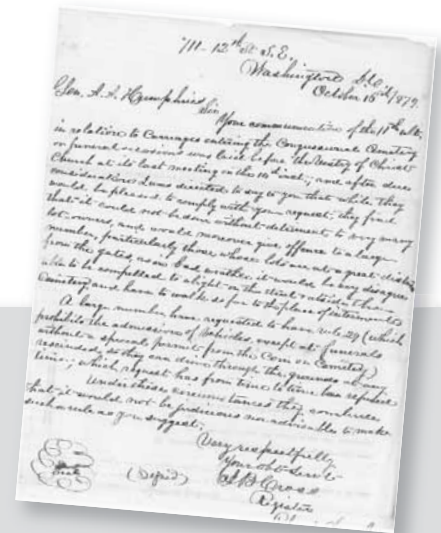 711- 12th St S.E.
Washington D.C.
October 16th 1879.
Gen. A. A. Humphries
Sir
Your communication of the 11th ult.
in relation to Carriages entering the Congressional Cemetery
on funeral occasions was laid before the Vestry of Christ
Church at its last meeting on the 10 inst; and after due
consideration I was directed to say to you that while they
would, be pleased to comply with your request, they find
that it could not be done without detriment to very many
lot-owners, and would moreover give offence to a large
number, particularly those whose lots are at a great distance
from the gates, as in bad weather it would be very disagree
able to be compelled to alight on the street outside the
Cemetery and have to walk so far to the place of interment
A large number have requested to have rule 29 (which
prohibits the admission of Vehicles, except at funerals
without a special permit from the Com on Cemetery)
rescinded, so they can drive through the grounds at any
time; which request has from time to time been refused
Under these circumstances they conclude
that it would not be judicious nor advisable to make
such a rule as you suggest;
Very respectfully
Your obt Servt
(Signed)
Cross
Register